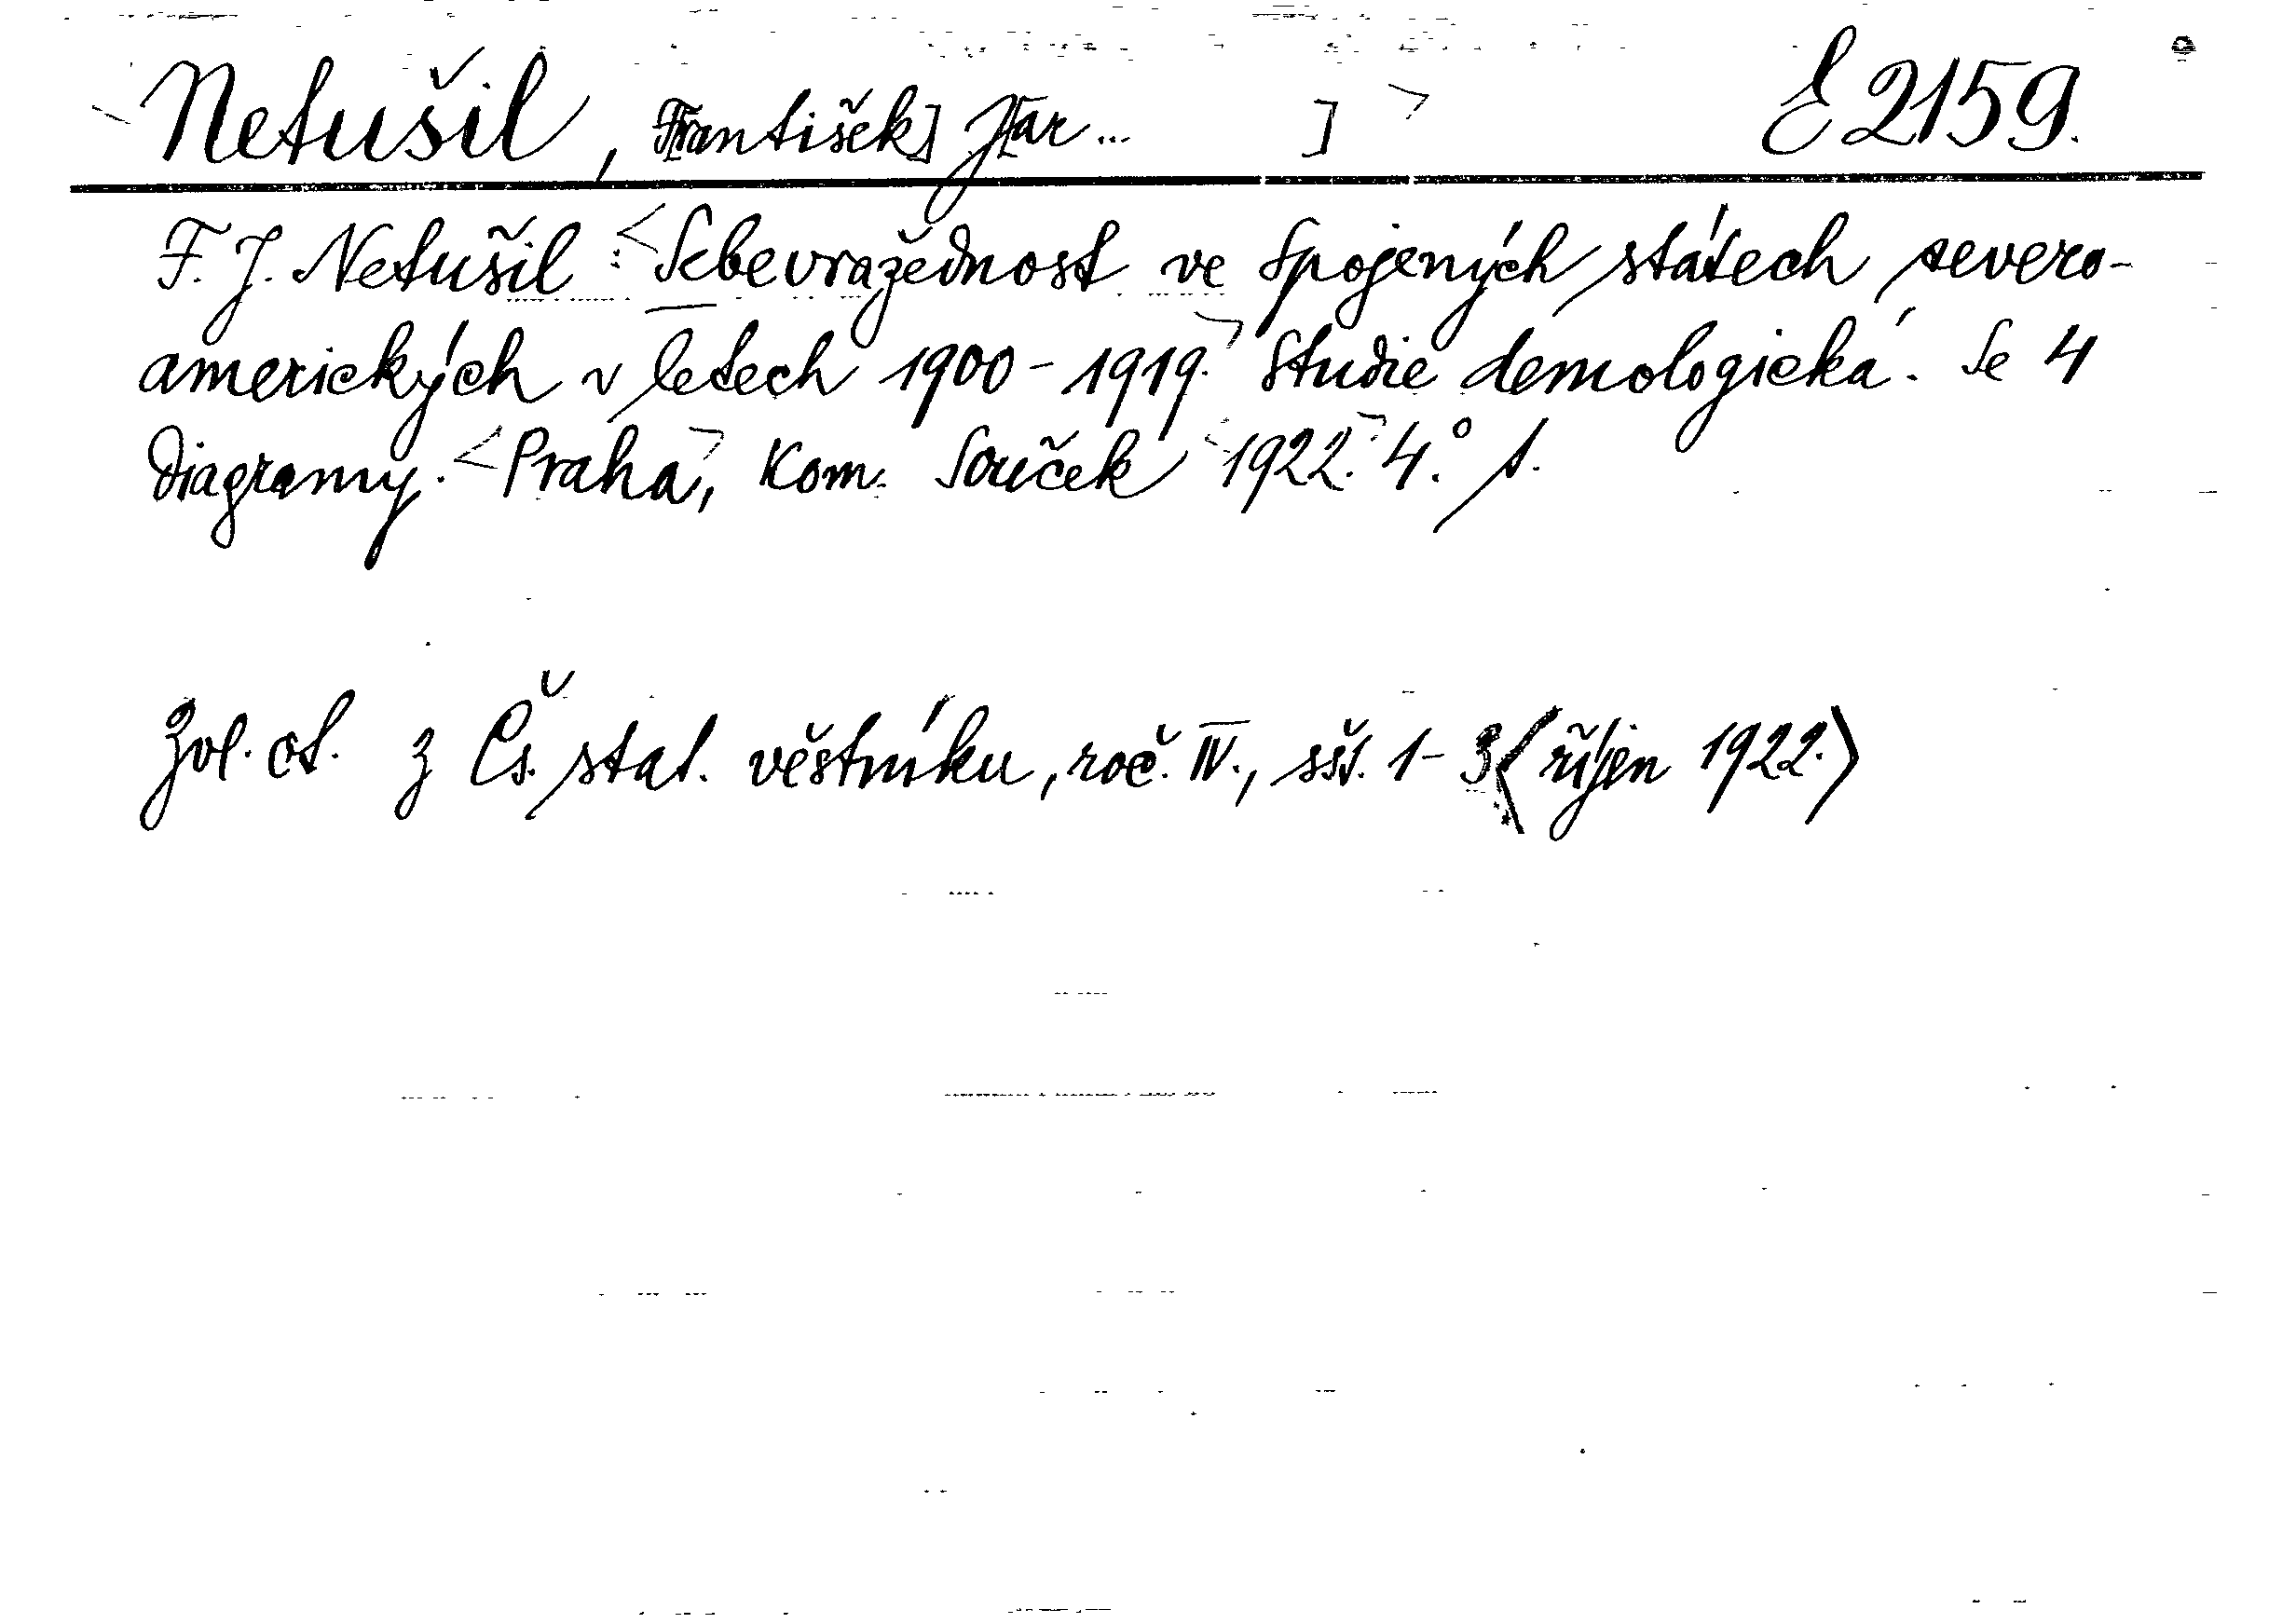 Netušil, F[rantišek] J[ar... ] E 2159.
F. J. Netušil: Sebevražednost ve Spojených státech severo-
amerických v letech 1900-1919. Studie demologická. Se 4
diagramy. Praha, Kom. Souček 1922. 4.° s.
Zvl. ot. z Čs. stat. věstníku, roč. IV., sš. 1-3 (říjen 1922.)